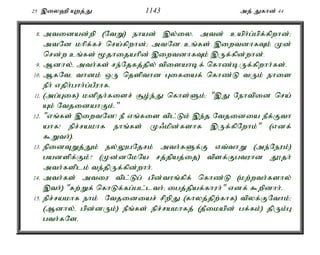 25 இலைஹி யுறத்து 1143 அத் துகான் 44
8. அவனையன்றி (வேறு) நாயன் இல்லை. அவன் உயிர்ப்பிக்கிறான்;
அவனே மரிக்கச் செய்கிறான்; அவனே உங்கள் இறைவனாகவும் முன்
சென்ற உங்கள் மூதாதையரின் இறைவனாகவும் இருக்கின்றான்.
9. ஆனால், அவர்கள் சந்தேகத்தில் விளையாடிக் கொண்டிருக்கிறார்கள்.
10. ஆகவே, வானம் ஒரு தெளிவான புகையைக் கொண்டு வரும் நாளை
நீர் எதிர்பார்ப்பீராக.
11. (அப்புகை) மனிதர்களைச் சூழ்ந்து கொள்ளும்: "இது நோவினை செய்
யும் வேதனையாகும்."
12. "எங்கள் இறைவனே! நீ எங்களை விட்டும் இந்த வேதனையை நீக்குவா
யாக! நிச்சயமாக நாங்கள் முஃமின்களாக இருக்கிறோம்" (எனக்
கூறுவர்).
13. நினைவுறுத்தும் நல்லுபதேசம் அவர்களுக்கு எவ்வாறு (அந்நேரம்)
பயனளிக்கும்? (முன்னமேயே சத்தியத்தை) விளக்குபவரான தூதர்
அவர்களிடம் வந்திருக்கின்றார்.
14. அவர்கள் அவரை விட்டுப் பின்வாங்கிக் கொண்டு (மற்றவர்களால்
இவர்) "கற்றுக் கொடுக்கப்பட்டவர்; பைத்தியக்காரர்" எனக் கூறினார்.
15. நிச்சயமாக நாம் வேதனையைச் சிறிது (காலத்திற்காக) விலக்குவோம்;
(ஆனால், பின்னரும்) நீங்கள் நிச்சயமாகத் (தீமையின் பக்கம்) திரும்பு
பவர்களே.